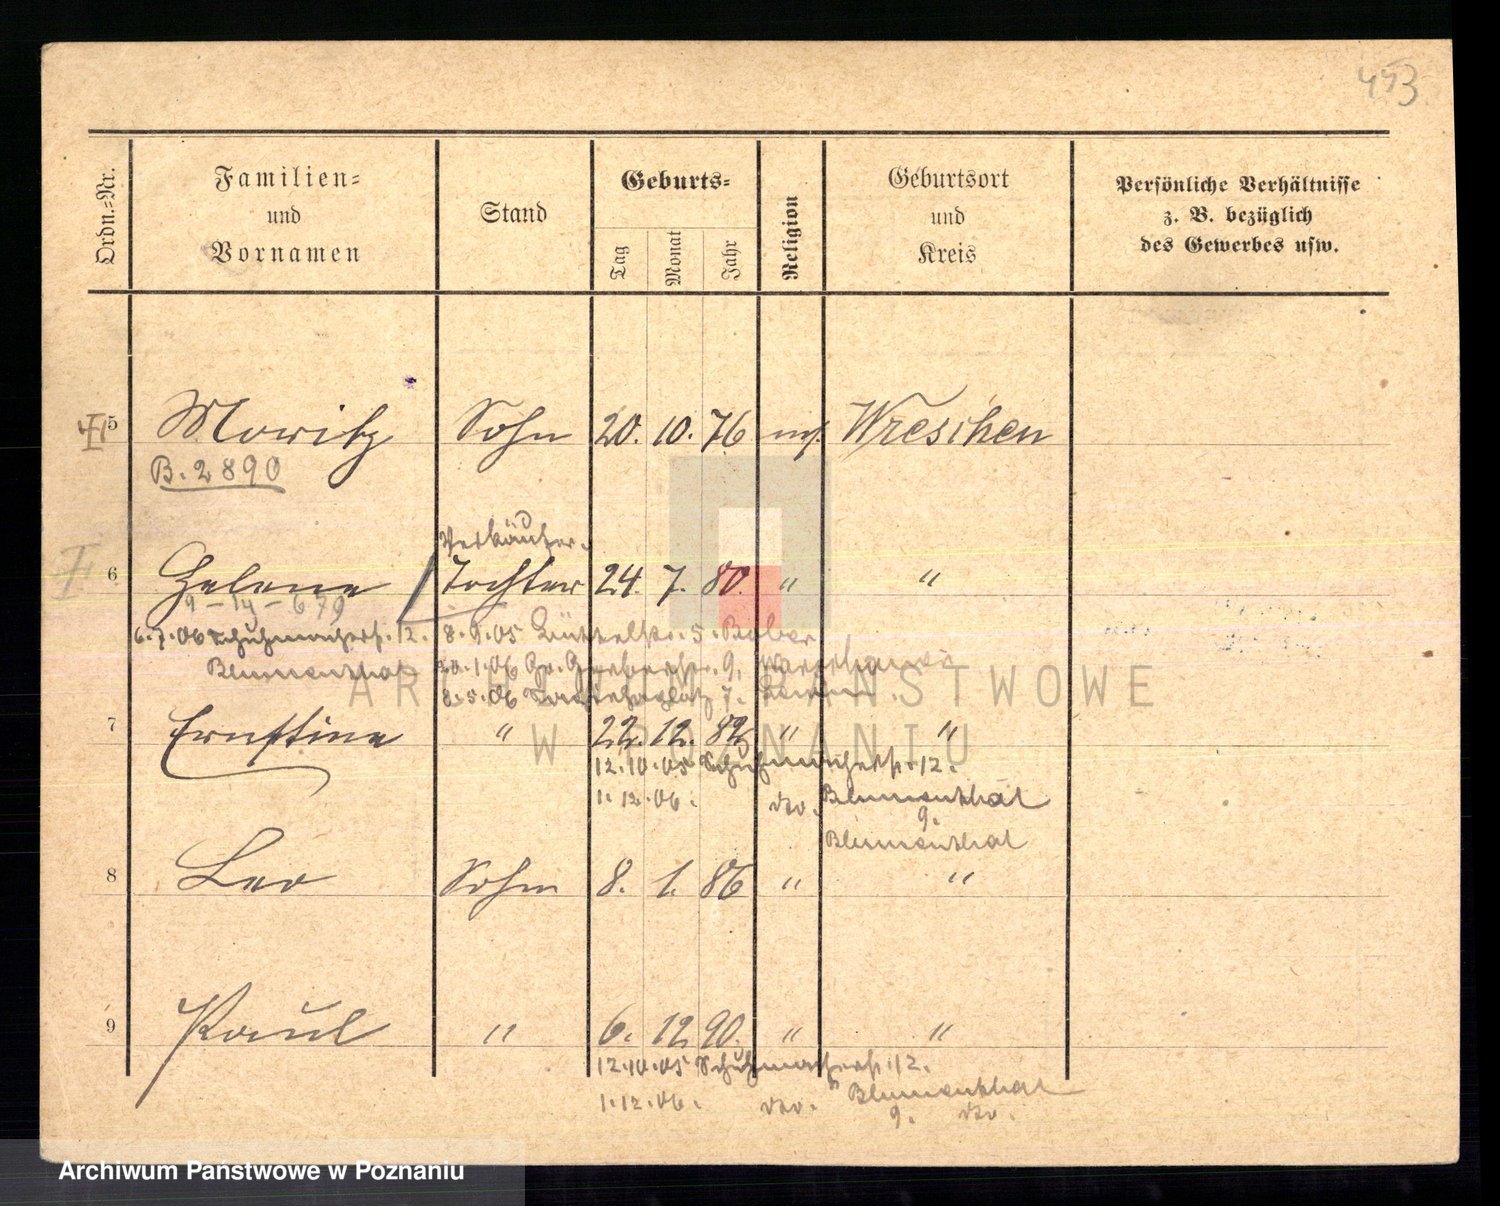 453
Ordn.-Nr.
Familien-
und
Vornamen
Stand
Geburts-
Tag
Monat
Jahr
Religion
Geburtsort
und
Kreis
Persönliche Verhältnisse
z. B. bezüglich
des Gewerbes usw.
5 Moritz Sohn 20. 10. 76 Wreschen
B. 2890
Verkäufer.
6 Helene Tochter 24. 7. 80. " "
6.7.06 Schuhmacherstr. 12. 8.9.05 5.
Blumenthal 20.1.06 Gr. Gerberstr. 9.
8.5.06 7.
7 Ernstine " 22. 12. 82 " "
12.10.05 Schuhmacherstr. 12.
1.12.06. do. Blumenthal
9.
Blumenthal
8 Leo Sohn 8. 1. 86 " "
9 Paul " 6. 12. 90. " "
12.10.05 Schuhmacherstr. 12.
Blumenthal
1.12.06. do. 9. do.
ARCHIWUM PAŃSTWOWE
W POZNANIU
Archiwum Państwowe w Poznaniu